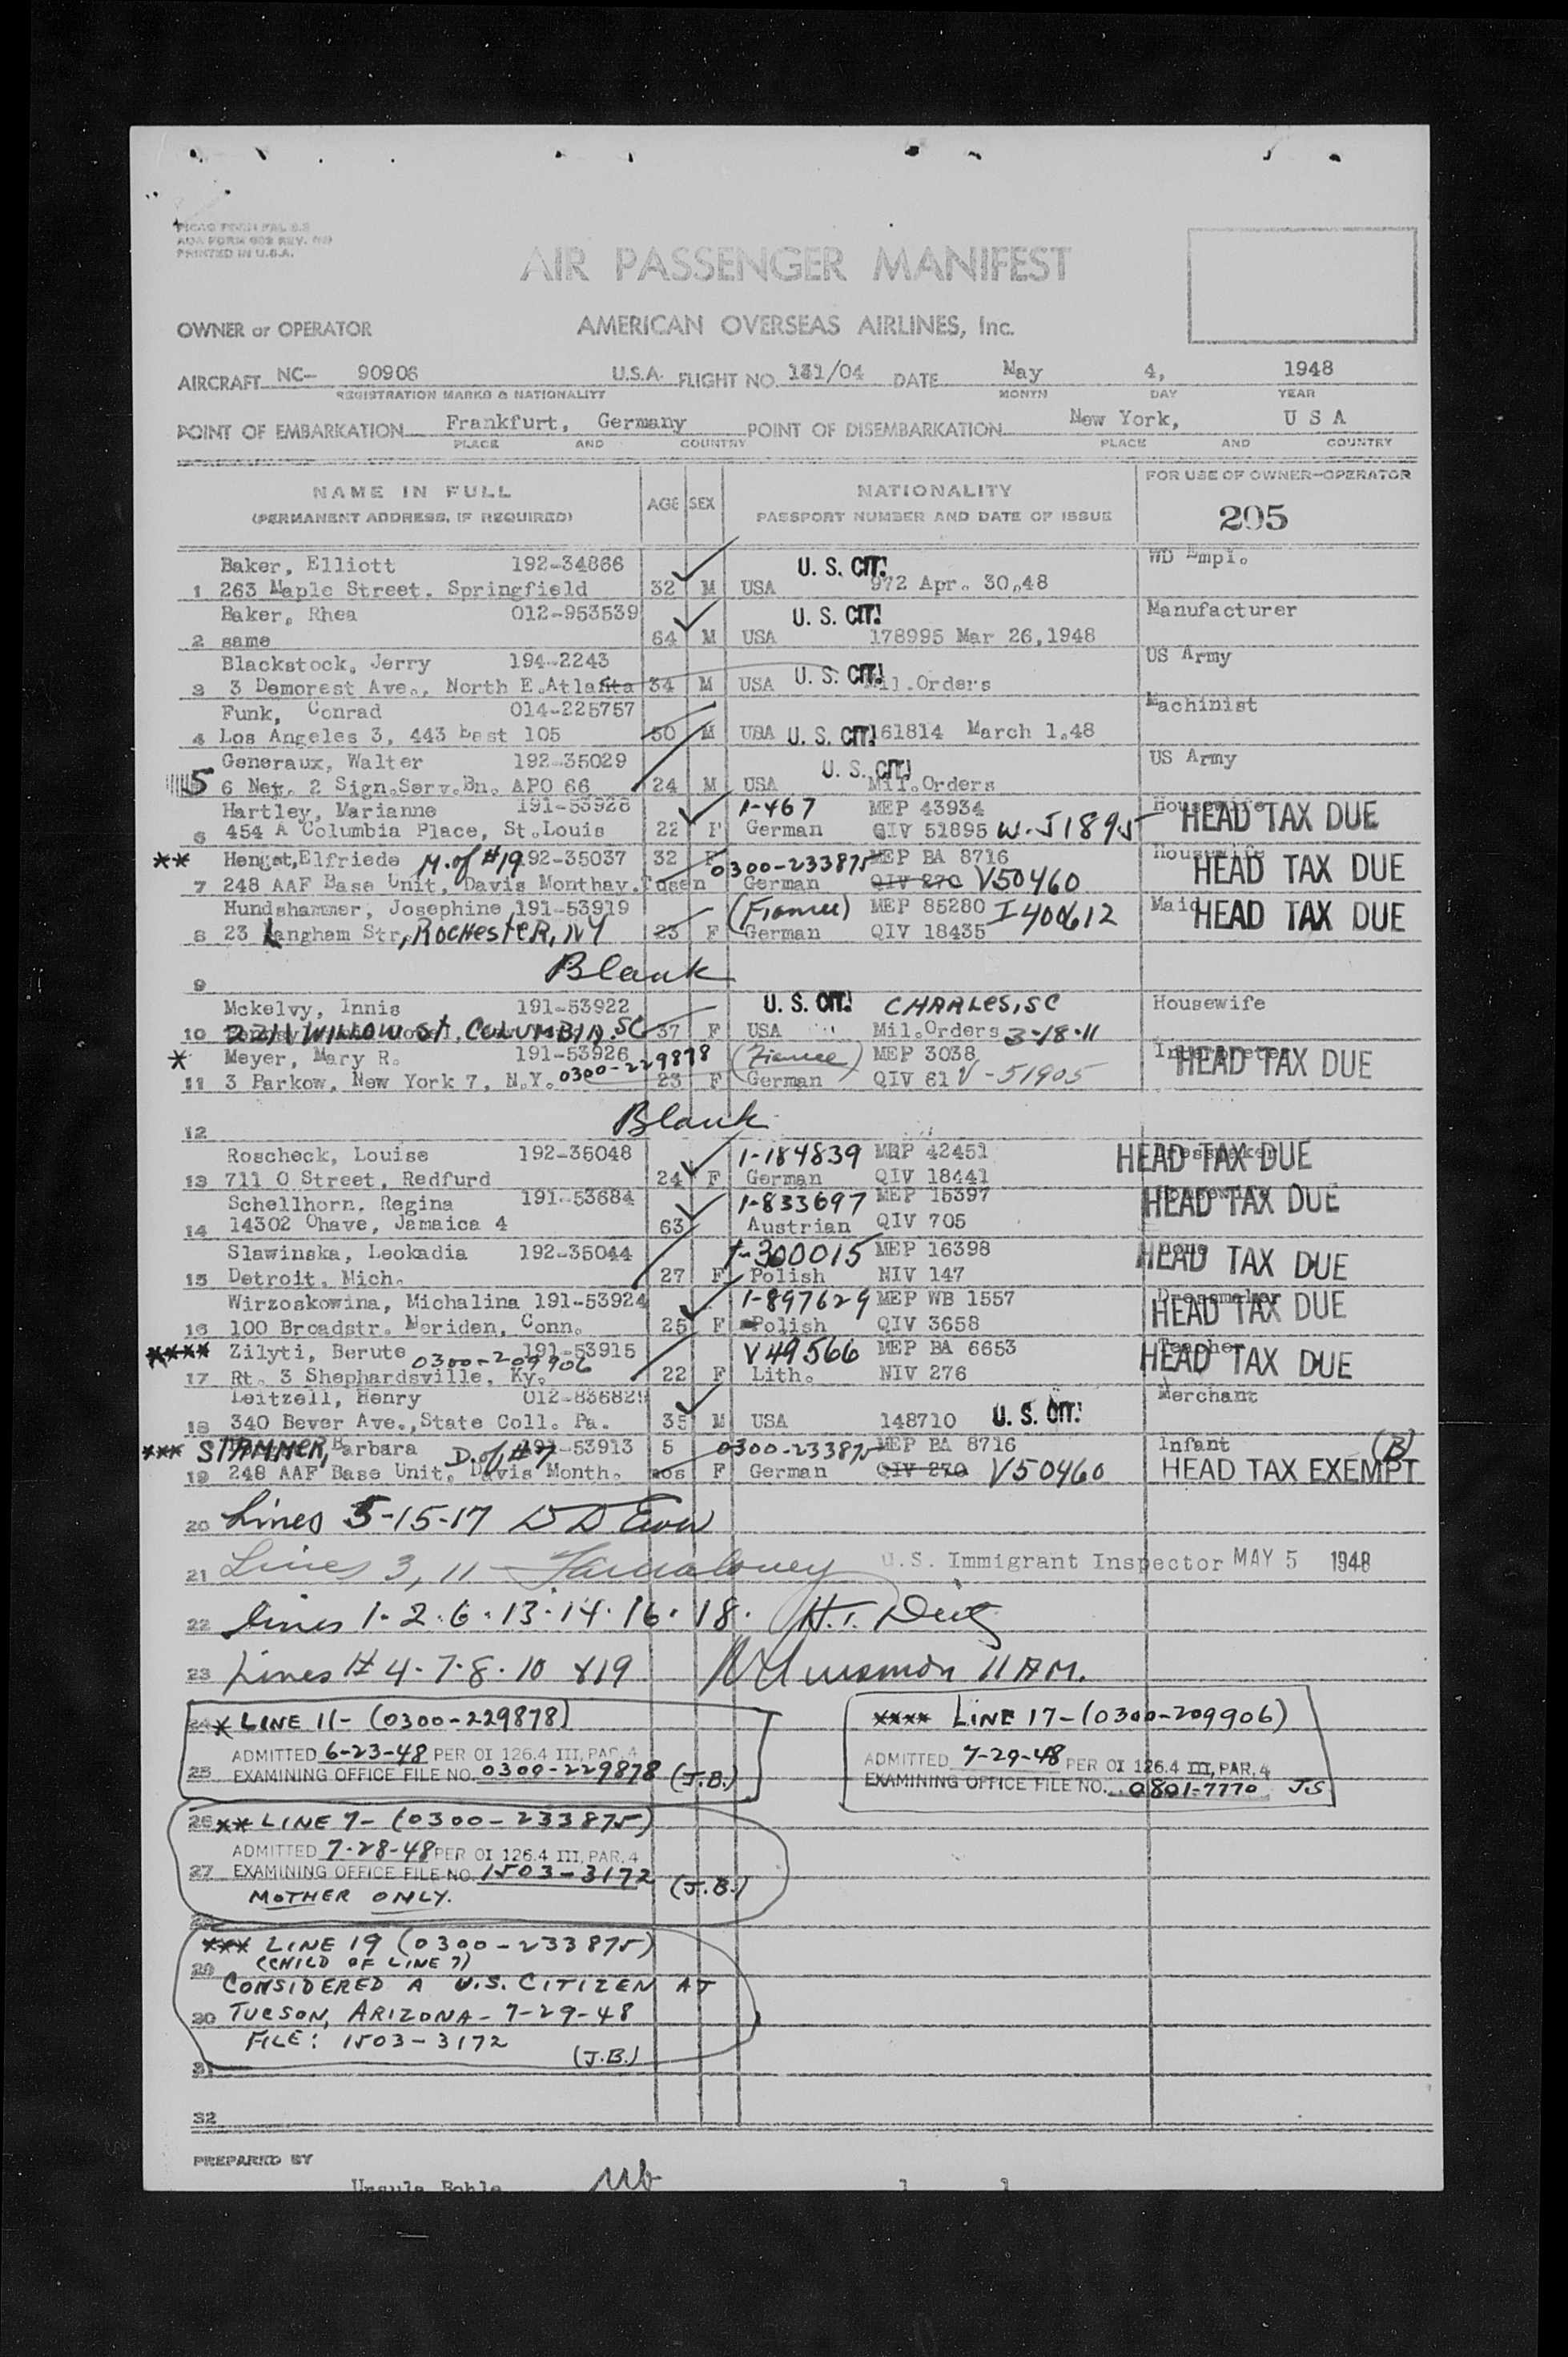 PRINTED IN U.S.A.
AIR PASSENGER MANIFEST
OWNER or OPERATOR AMERICAN OVERSEAS AIRLINES, Inc.
AIRCRAFT NC- 90906 U.S.A. FLIGHT NO. 131/04 DATE May 4, 1948
REGISTRATION MARKS & NATIONALITY MONTH DAY YEAR
POINT OF EMBARKATION Frankfurt, Germany POINT OF DISEMBARKATION New York, U S A
PLACE AND COUNTRY PLACE AND COUNTRY
NAME IN FULL AGE SEX NATIONALITY FOR USE OF OWNER-OPERATOR
(PERMANENT ADDRESS, IF REQUIRED) PASSPORT NUMBER AND DATE OF ISSUE 205
Baker, Elliott 192-34866 U. S. CIT. WD Empl.
1 263 Maple Street. Springfield 32 M USA 972 Apr. 30.48
Baker, Rhea 012-953539 U. S. CIT. Manufacturer
2 same 64 M USA 178995 Mar 26,1948
Blackstock, Jerry 194-2243 U. S. CIT. US Army
3 3 Demorest Ave., North E.Atlanta 34 M USA Mil.Orders
Funk, Conrad 014-225757 Machinist
4 Los Angeles 3, 443 East 105 50 M USA U. S. CIT. 161814 March 1.48
Generaux, Walter 192-35029 U. S. CIT. US Army
5 6 Net. 2 Sign.Serv.Bn. APO 66 24 M USA Mil.Orders
Hartley, Marianne 191-53928 1-467 MEP 43934 Housewife HEAD TAX DUE
6 454 A Columbia Place, St.Louis 22 F German QIV 51895 W-51895
** Hengst,Elfriede M. of #19 192-35037 32 F 0300-233875 MEP BA 8716 Housewife HEAD TAX DUE
7 248 AAF Base Unit, Davis Monthay.Tusen German QIV 270 V50460
Hundshammer, Josephine 191-53919 (Fiancee) MEP 85280 I400612 Maid HEAD TAX DUE
8 23 Langham Str, ROCHESTER, NY 23 F German QIV 18435
9 Blank
Mckelvy, Innis 191-53922 U. S. CIT. CHARLES, SC Housewife
10 2211 WILLOW St. COLUMBIA. SC 37 F USA Mil.Orders 3-18-11
* Meyer, Mary R. 191-53926 (Fiancee) MEP 3038 Interpreter HEAD TAX DUE
11 3 Parkow, New York 7, N.Y. 0300-229878 23 F German QIV 61 V-51905
12 Blank
Roscheck, Louise 192-35048 1-184839 MEP 42451 Dressmaker HEAD TAX DUE
13 711 O Street, Redfurd 24 F German QIV 18441
Schellhorn, Regina 191-53684 1-833697 MEP 15397 Housewife HEAD TAX DUE
14 14302 Ohave, Jamaica 4 63 Austrian QIV 705
Slawinska, Leokadia 192-35044 1-300015 MEP 16398 None HEAD TAX DUE
15 Detroit, Mich. 27 F Polish NIV 147
Wirzoskowina, Michalina 191-53924 1-897629 MEP WB 1557 Dressmaker HEAD TAX DUE
16 100 Broadstr. Meriden, Conn. 25 F Polish QIV 3658
**** Zilyti, Berute 191-53915 0300-209906 V49566 MEP BA 6653 Teacher HEAD TAX DUE
17 Rt. 3 Shephardsville, Ky. 22 F Lith. NIV 276
Leitzell, Henry 012-836829 Merchant
18 340 Bever Ave.,State Coll. Pa. 35 M USA 148710 U. S. CIT.
*** STAMMER, Barbara D. of #7 191-53913 5 0300-233875 MEP BA 8716 Infant (B)
19 248 AAF Base Unit, Davis Month. mos F German QIV 270 V50460 HEAD TAX EXEMPT
20 Lines 5-15-17
21 Lines 3, 11 U.S. Immigrant Inspector MAY 5 1948
22 Lines 1-2-6-13-14-16-18.
23 Lines # 4-7-8-10 &19 11 AM.
24 * LINE 11- (0300-229878)
ADMITTED 6-23-48 PER OI 126.4 III, PAR. 4
25 EXAMINING OFFICE FILE NO. 0300-229878 (J.B.)
**** LINE 17-(0300-209906)
ADMITTED 7-29-48 PER OI 126.4 III, PAR. 4
EXAMINING OFFICE FILE NO. 0801-7770 JS
26 ** LINE 7- (0300-233875)
ADMITTED 7-28-48 PER OI 126.4 III, PAR. 4
27 EXAMINING OFFICE FILE NO. 1503-3172
MOTHER ONLY. (J.B.)
28
*** LINE 19 (0300-233875)
29 (CHILD OF LINE 7)
CONSIDERED A U.S. CITIZEN AT
30 TUCSON, ARIZONA - 7-29-48
FILE: 1503-3172
(J.B.)
31
32
PREPARED BY
Ursula Bohle